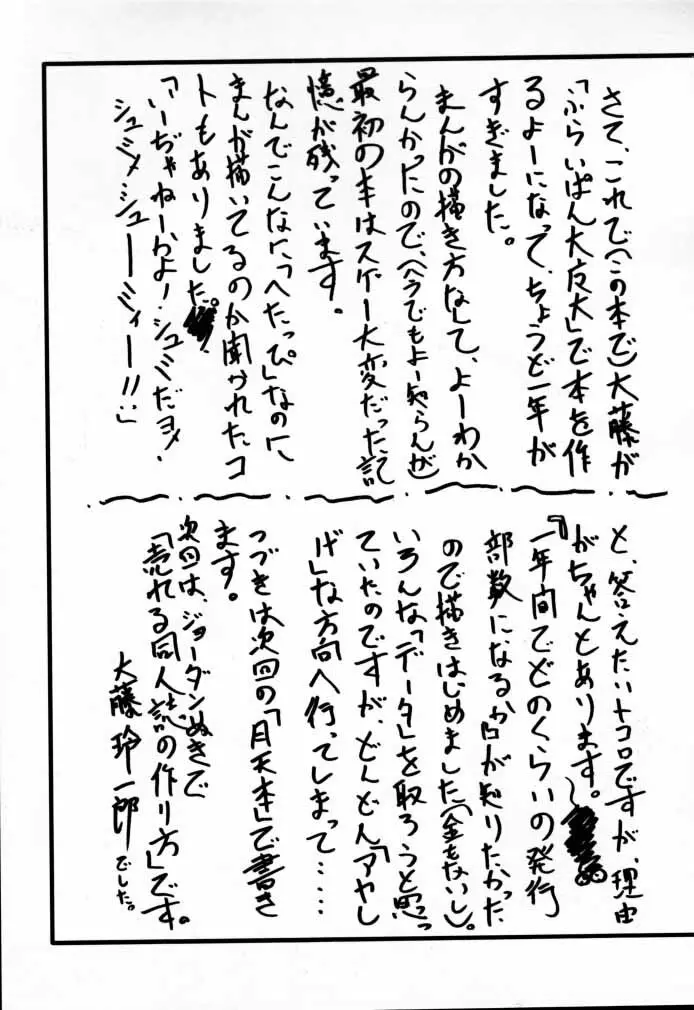 さて、これで(この本で)大藤が
「ふらいぱん大反大」で本を作
るよーになって、ちょうど一年が
すぎました。
まんがの描き方なして、よーわか
らんかったので、(今でもよー知らんが)
最初の本はスゲー大変だった記
憶が残っています。
なんでこんなに、「へたっぴ」なのに
まんが描いてるのか聞かれたコ
トもありました。
「いーぢゃねーかよ!シュミだヨ!
シュミ!シューミィー!!」
と、答えたいトコロですが、理由
がちゃんとあります。
『一年間でどのくらいの発行
部数になるか』が知りたかった
ので描きはじめました(金もないし)。
いろんな「データ」を取ろうと思っ
ていたのですが、どんどん「アヤし
げ」な方向へ行ってしまって……
つづきは次回の「月天本」で書き
ます。
次回は、ジョーダンぬきで
「売れる同人誌の作り方」です。
大藤玲一郎でした。